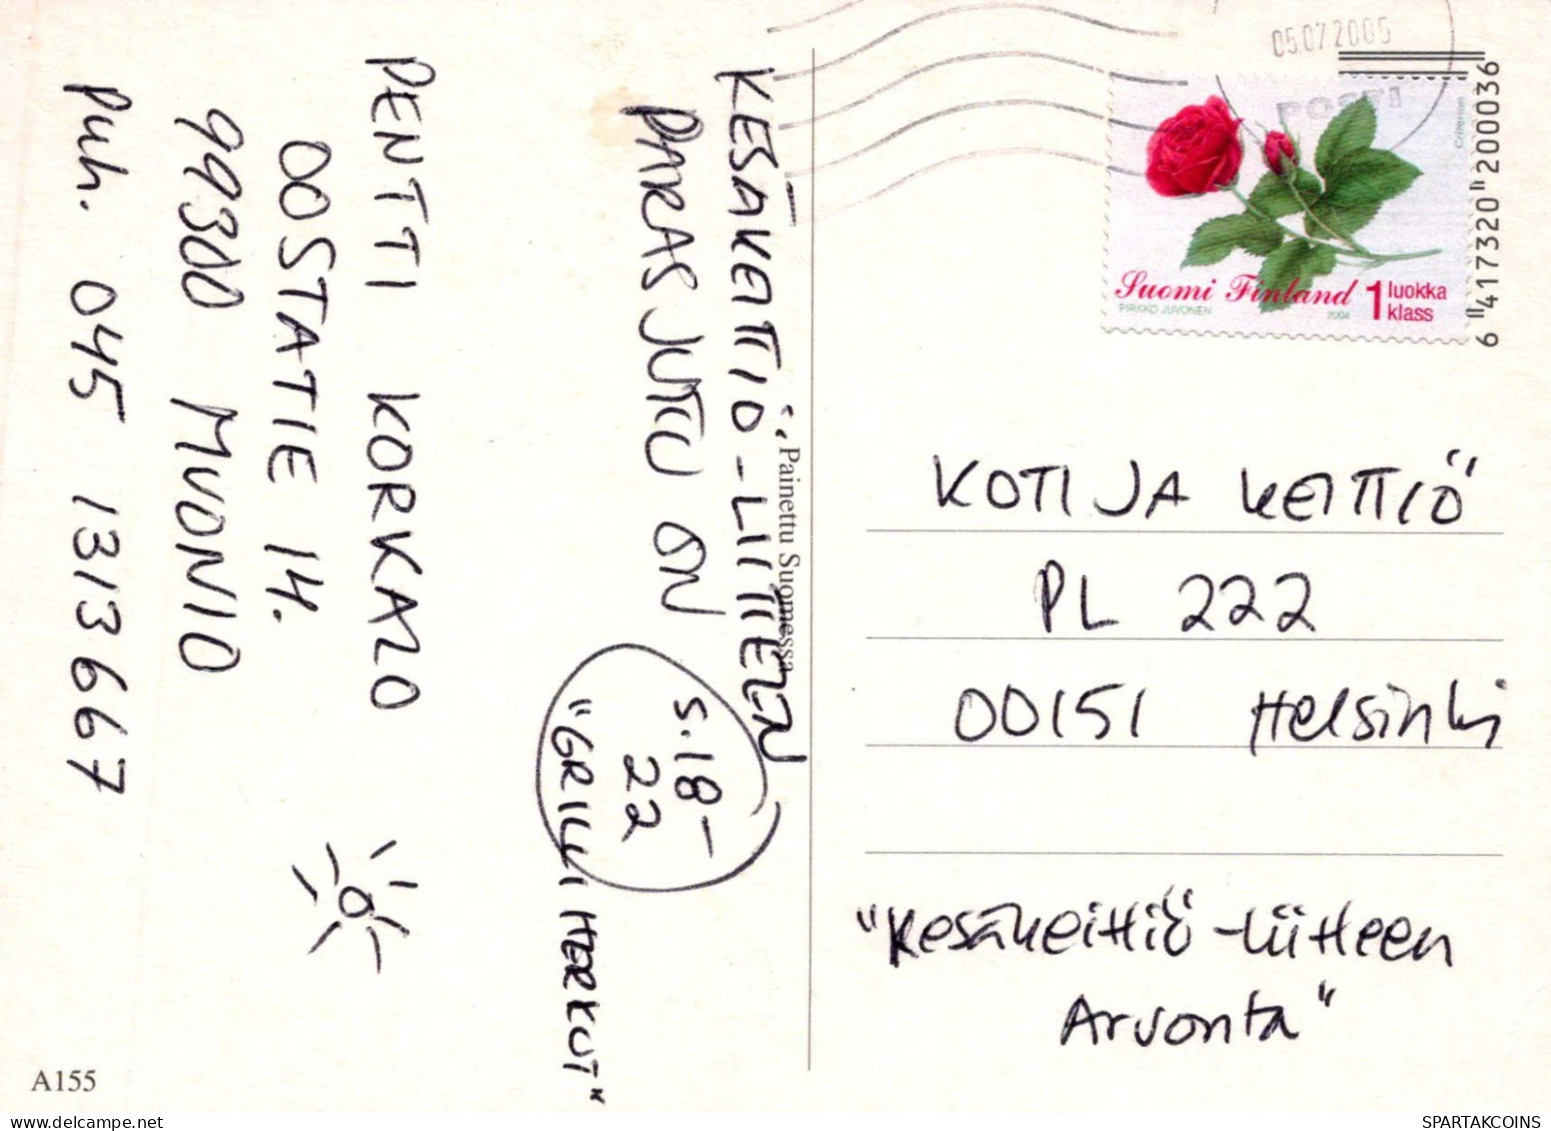 KESÄKEITTIÖ-LIITTEEN
PARAS JUTTU ON
S.18-
22
"GRILLI HERKUT"
PENTTI KORKALO
OOSTATIE 14.
99300 MUONIO
Puh. 045 1313667
A155
Painettu Suomessa
05.07.2005
POSTI
Criterion
Suomi Finland 1 luokka
klass
PIRKKO JUVONEN 2004
6 417320 200036
KOTI JA KEITTIÖ
PL 222
00151 Helsinki
"Kesäkeittiö-liitteen
Arvonta"
www.delcampe.net
SPARTAKCOINS